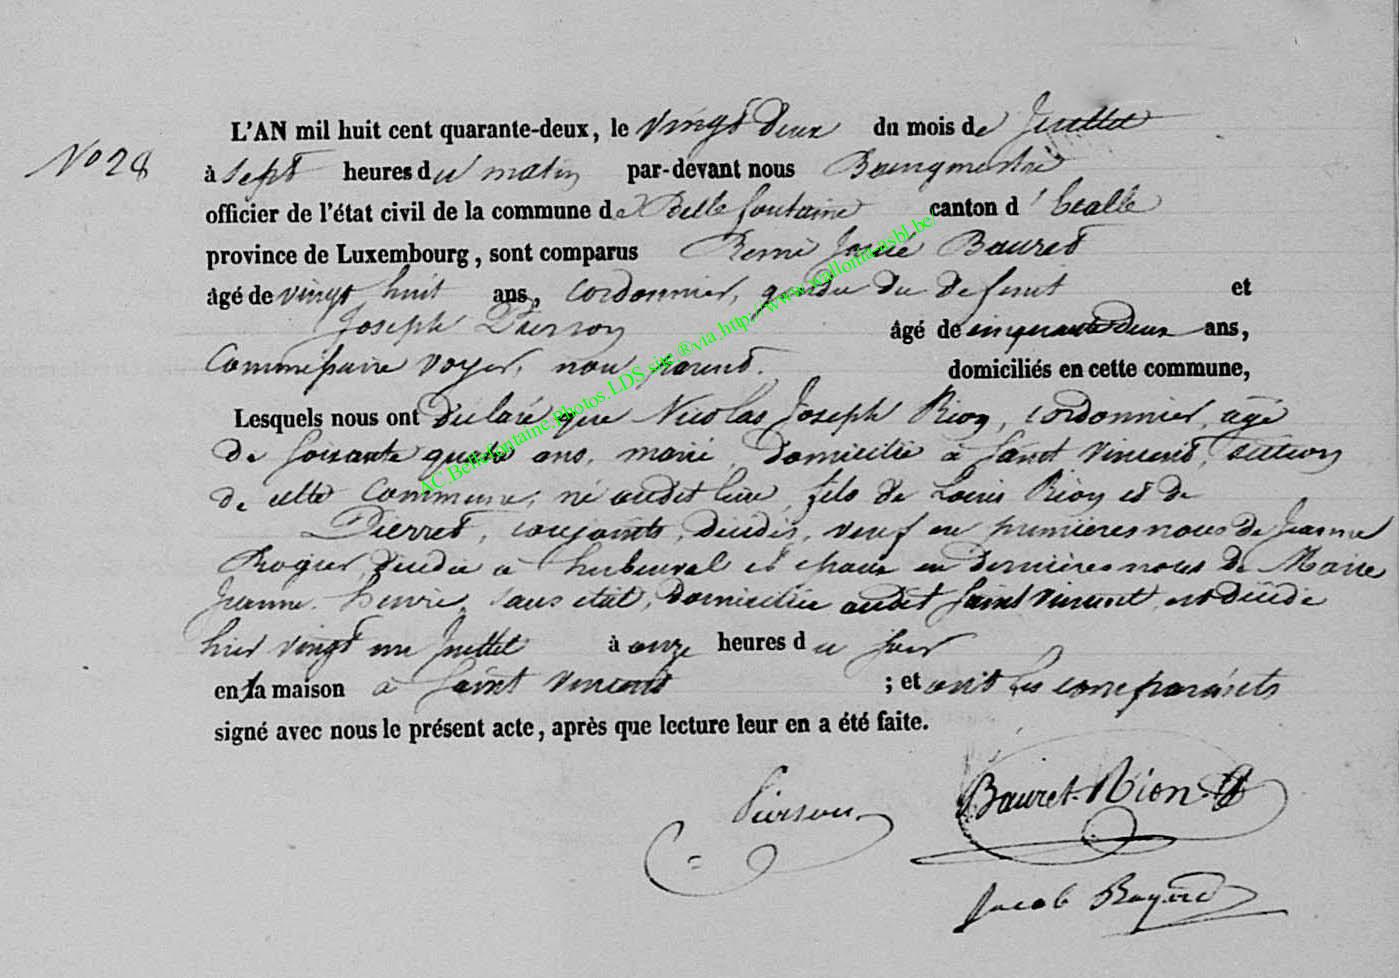 No 28
L'AN mil huit cent quarante-deux, le vingt deux du mois de Juillet
à sept heures du matin par-devant nous Bourgmestre
officier de l'état civil de la commune de Bellefontaine canton d'Etalle
province de Luxembourg, sont comparus Remi José Bauret
âgé de vingt huit ans, cordonnier, gendre du defunt et
Joseph Pierson âgé de cinquante deux ans,
Commissaire voyer, non parent. domiciliés en cette commune,
Lesquels nous ont déclaré que Nicolas Joseph Rion, cordonnier, âgé
de soixante quatre ans, marié, domicilié à Saint Vincent, section
de cette Commune, né audit lieu, fils de Louis Rion et de
Pierret, conjoints, décédés, veuf en premières noces de Jeanne
Rogier, décédée à herbeuval et epoux en dernières noces de Marie
Jeanne henrie, sans etat, domiciliée audit Saint Vincent, est décédé
hier vingt un Juillet à onze heures du soir
en sa maison à Saint Vincent ; et ont les comparants
signé avec nous le présent acte, après que lecture leur en a été faite.
Pierson Bauret-Rion
Jacob
AC.Bellefontaine.Photos.LDS.site.®via.http://www.wallonia-asbl.be/